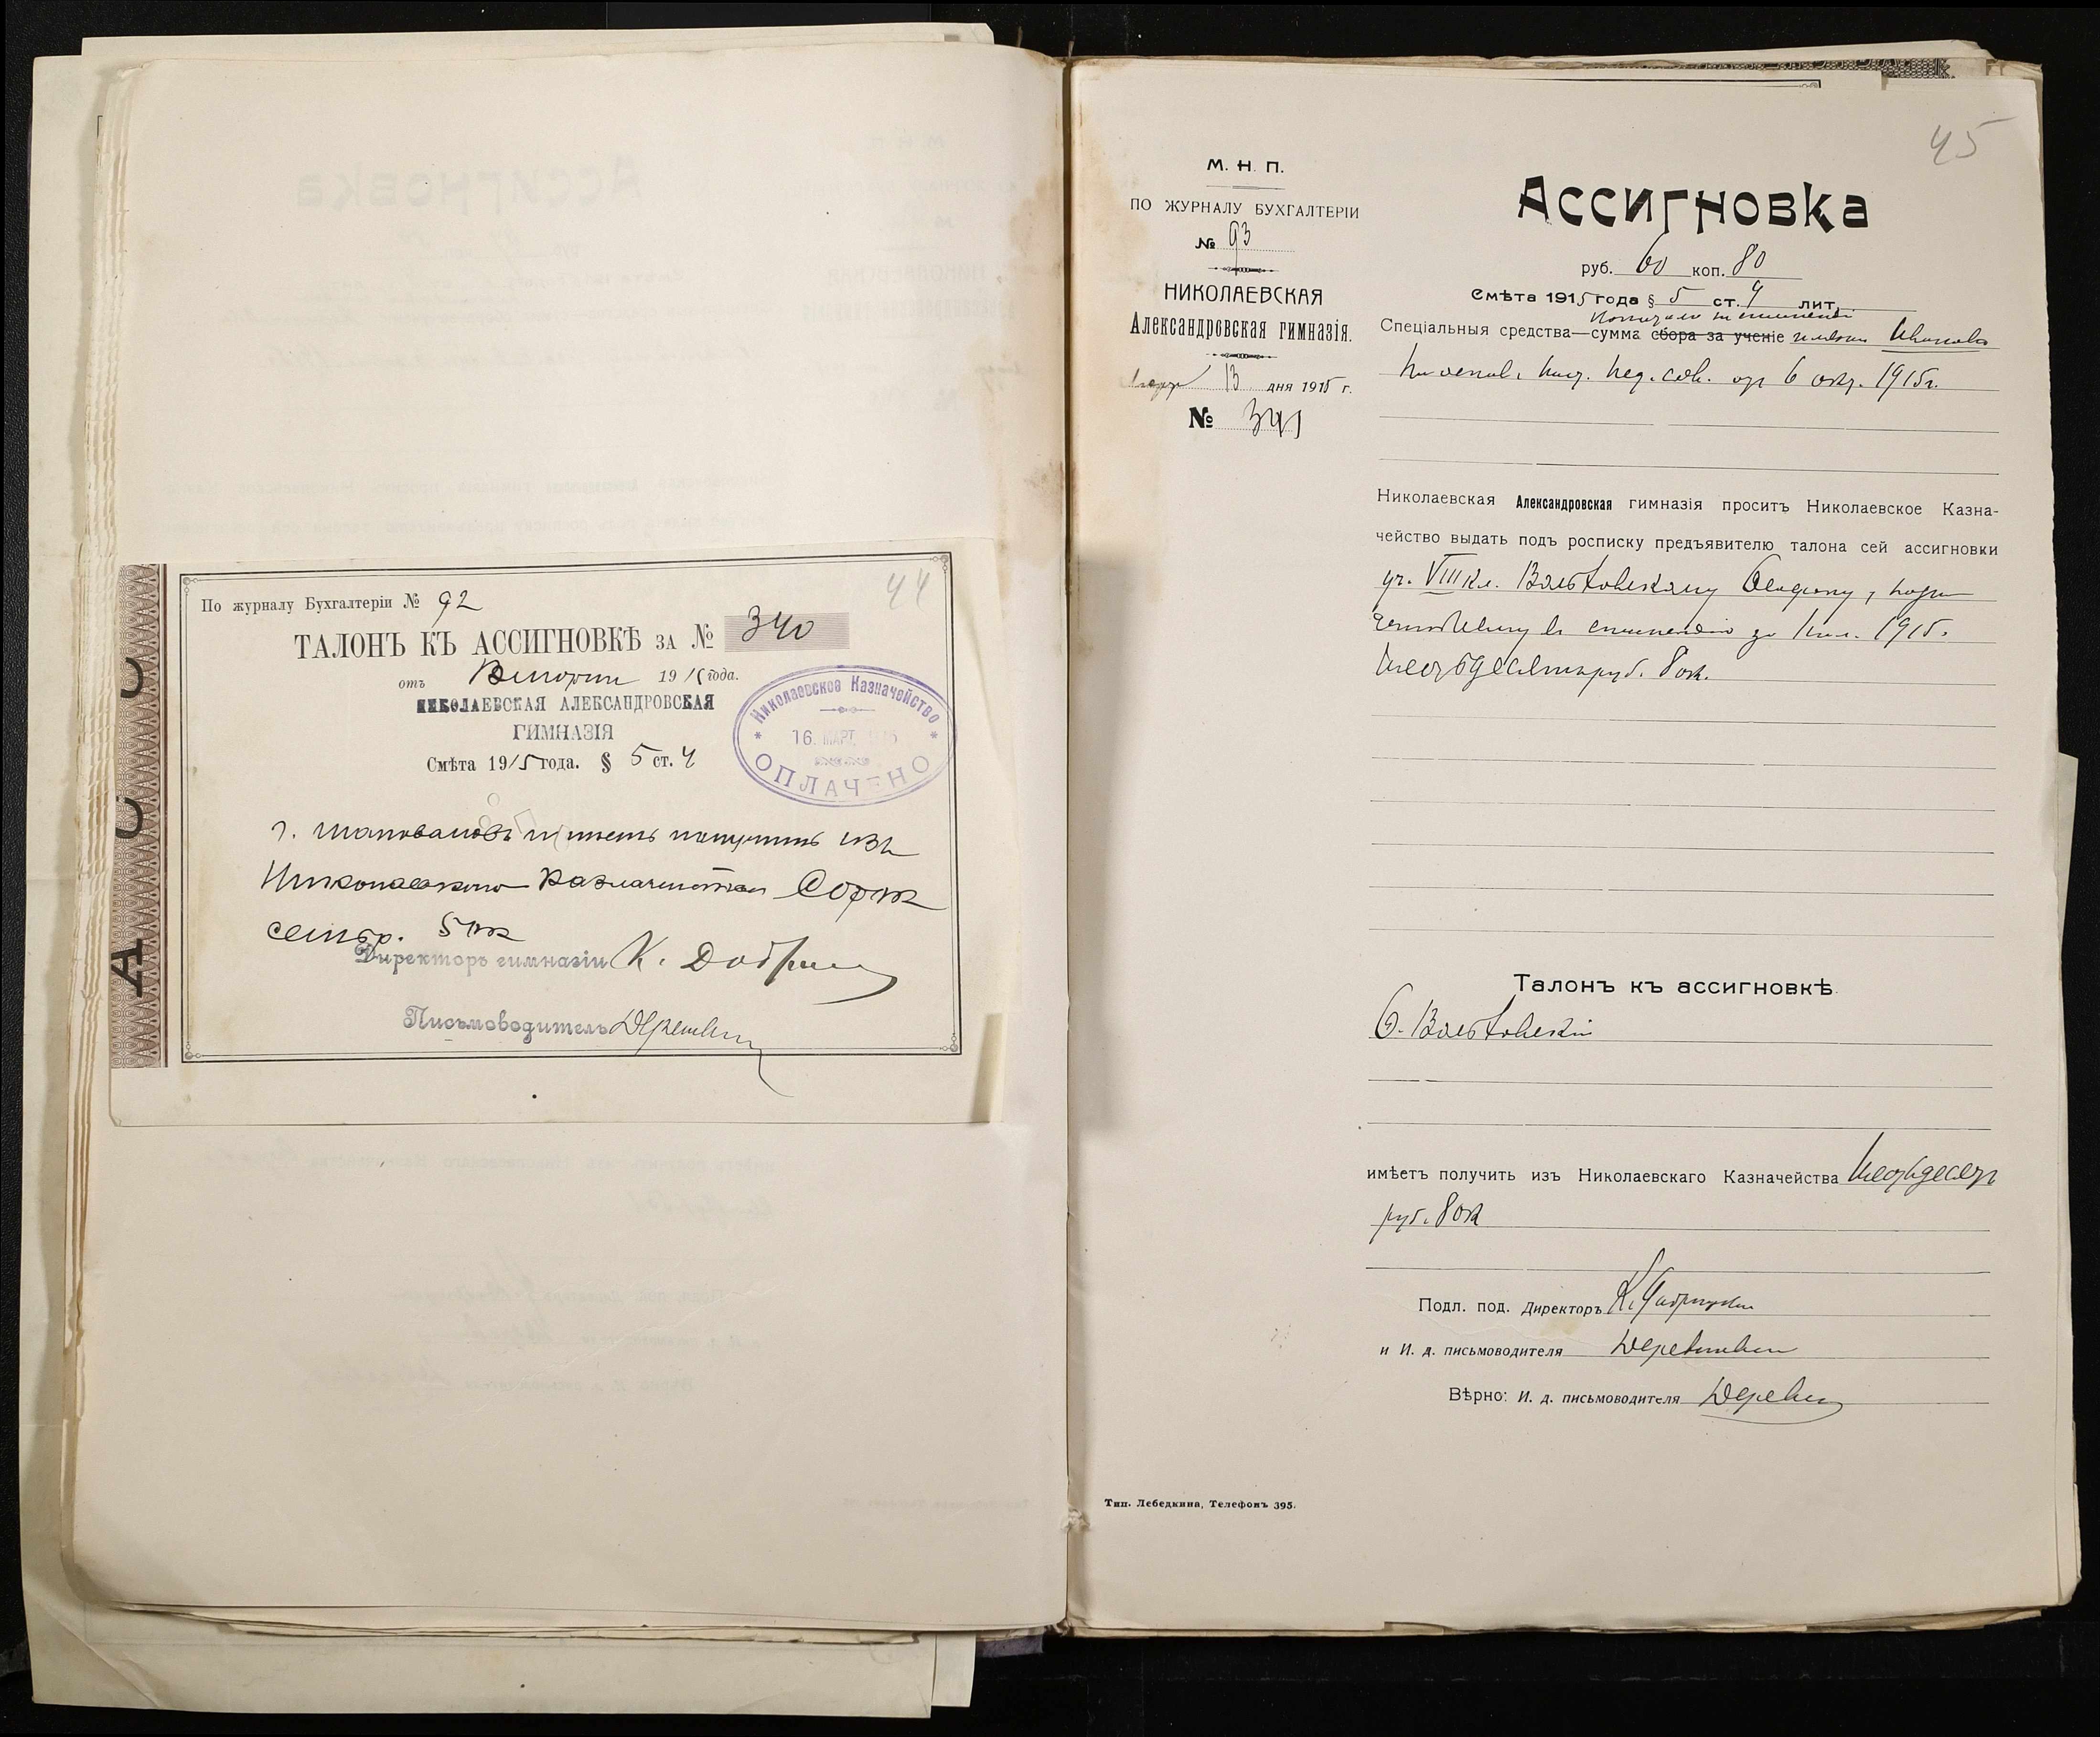 44
По журналу Бухгалтеріи № 92
ТАЛОНЪ КЪ АССИГНОВКѢ ЗА № 340
отъ 1915 года.
НИКОЛАЕВСКАЯ АЛЕКСАНДРОВСКАЯ
ГИМНАЗІЯ
Смѣта 1915 года. § 5 ст. 4
Николаевское Казначейство
16. МАРТ. 1915
ОПЛАЧЕНО
г. Шаповаловъ имѣетъ получить изъ
Николаевскаго Казначейства Сорок
семь р. 50к
Директоръ гимназіи К.
Письмоводитель
45
М. Н. П.
ПО ЖУРНАЛУ БУХГАЛТЕРІИ
№ 93
НИКОЛАЕВСКАЯ
Александровская гимназія.
Март 13 дня 1915 г.
№ 341
Ассигновка
руб. 60 коп. 80
Смѣта 1915 года § 5 ст. 4 лит.
Спеціальныя средства—сумма сбора за ученіе имени
Пед. сов. от 6 окт. 1915г.
Николаевская Александровская гимназія проситъ Николаевское Казна-
чейство выдать подъ росписку предъявителю талона сей ассигновки
уч. VIII кл.
стипендію за 1 пол. 1915.
Шестьдесятъ руб. 80к.
Талонъ къ ассигновкѣ.
имѣетъ получить изъ Николаевскаго Казначейства Шестьдесят
руб. 80к
Подл. под. Директоръ К.
и И. д. письмоводителя
Вѣрно: И. д. письмоводителя
Тип. Лебедкина, Телефонъ 395.